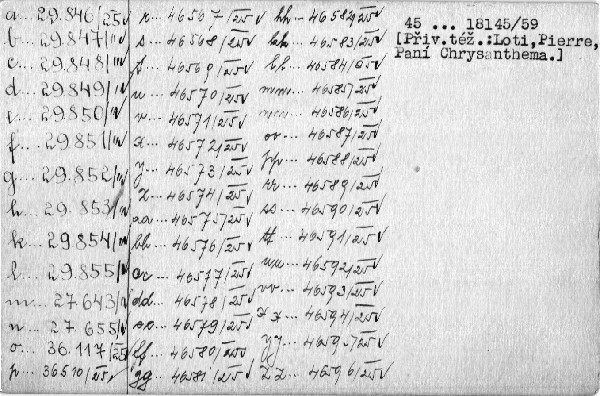 a... 29.846/25
b... 29.847/IV
c... 29.848/IV
d... 29.849/IV
e... 29.850/IV
f... 29.851/IV
g... 29.852/IV
h... 29.853/IV
k... 29.854/IV
l... 29.855/IV
m... 27.643/IV
n... 27.655/IV
o... 36.117/25
p... 36510/25
r... 46567/25
s... 46568/25
t... 46569/25
u... 46570/25
v... 46571/25
x... 46572/25
y... 46573/25
z... 46574/25
aa... 46575/25
bb... 46576/25
cc... 46577/25
dd... 46578/25
ee... 46579/25
ff... 46580/25
gg... 46581/25
hh... 46582/25
kk... 46583/25
ll... 46584/25
mm... 46585/25
nn... 46586/25
oo... 46587/25
pp... 46588/25
rr... 46589/25
ss... 46590/25
tt... 46591/25
uu... 46592/25
vv... 46593/25
xx... 46594/25
yy... 46595/25
zz... 46596/25
45 ... 18145/59
[Přiv.též.:Loti,Pierre,
Paní Chrysanthema.]